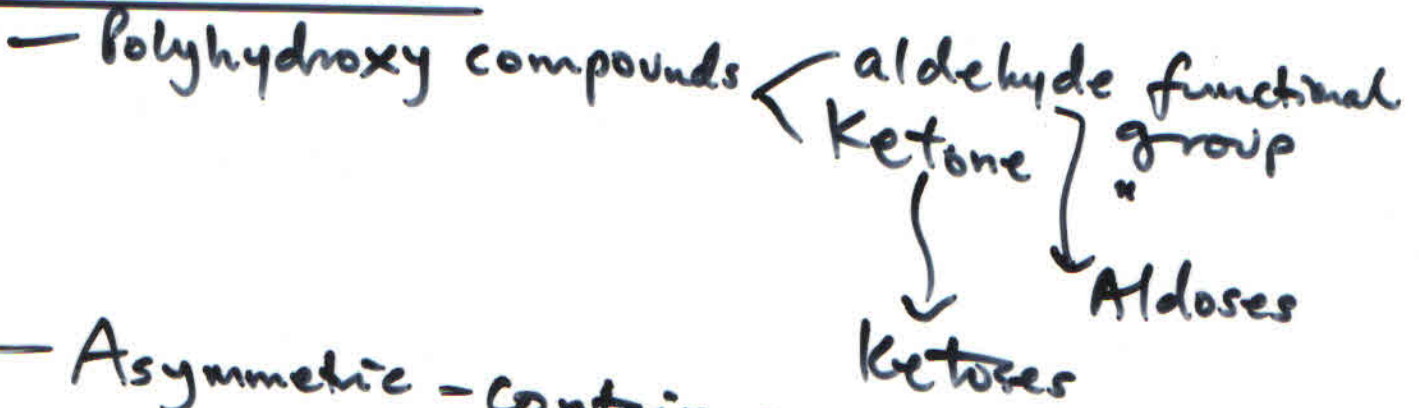 — Polyhydroxy compounds < aldehyde functional
Ketone group
"
Aldoses
Ketoses
— Asymmetric -